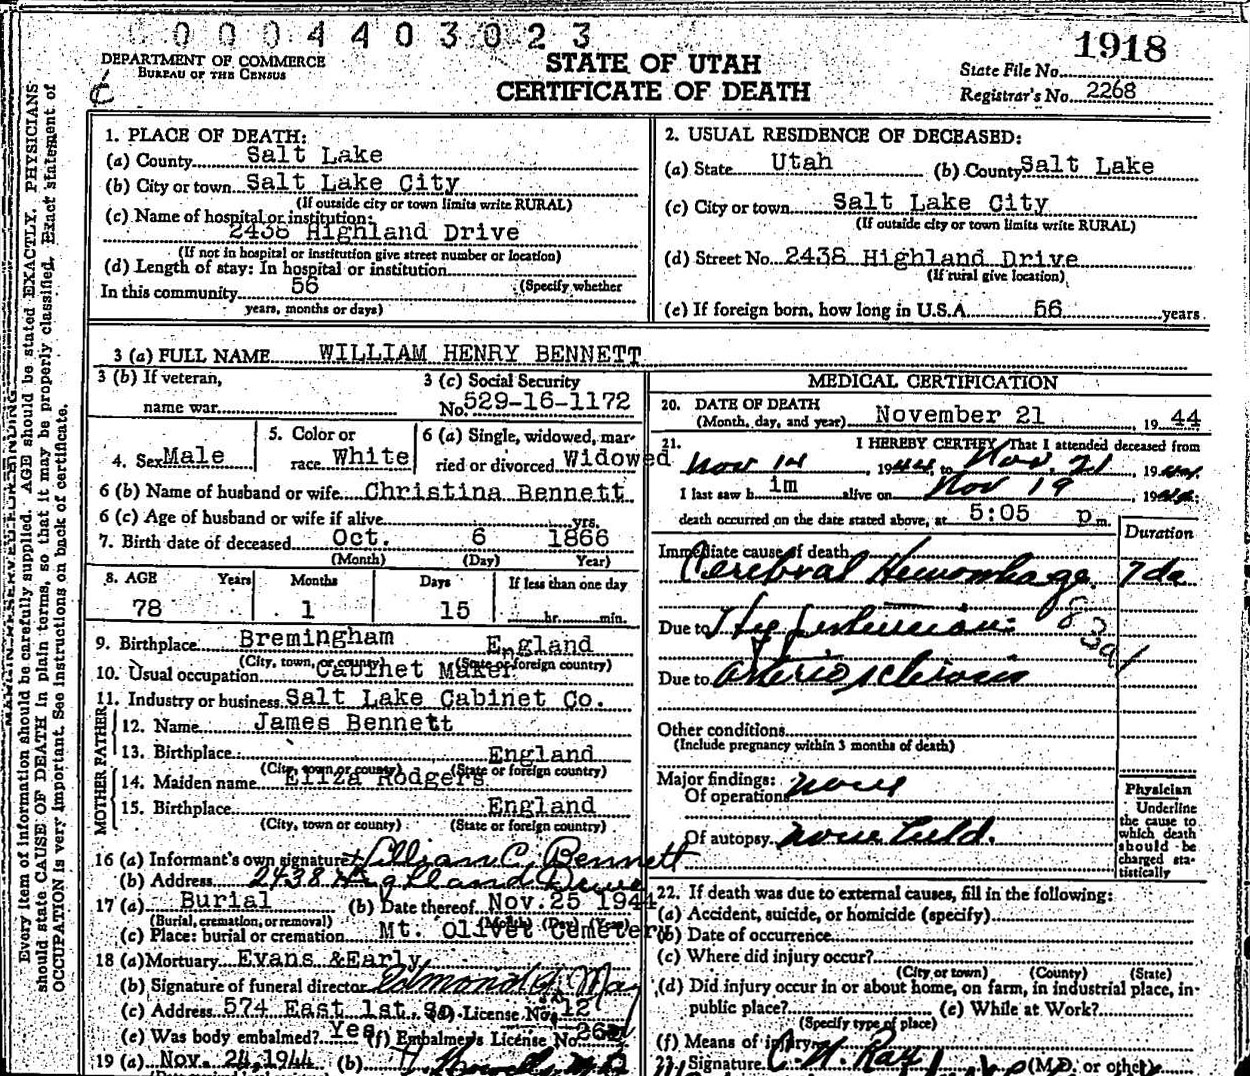 0004403023
DEPARTMENT OF COMMERCE
BUREAU OF THE CENSUS
STATE OF UTAH
CERTIFICATE OF DEATH
1918
State File No.
Registrar's No. 2268
1. PLACE OF DEATH:
(a) County Salt Lake
(b) City or town Salt Lake City
(If outside city or town limits write RURAL)
(c) Name of hospital or institution:
2438 Highland Drive
(If not in hospital or institution give street number or location)
(d) Length of stay: In hospital or institution
In this community 56 (Specify whether
years, months or days)
2. USUAL RESIDENCE OF DECEASED:
(a) State Utah (b) County Salt Lake
(c) City or town Salt Lake City
(If outside city or town limits write RURAL)
(d) Street No. 2438 Highland Drive
(If rural give location)
(e) If foreign born, how long in U.S.A. 56 years
3 (a) FULL NAME WILLIAM HENRY BENNETT
3 (b) If veteran,
name war
3 (c) Social Security
No. 529-16-1172
4. Sex Male
5. Color or
race White
6 (a) Single, widowed, mar-
ried or divorced Widowed
6 (b) Name of husband or wife Christina Bennett
6 (c) Age of husband or wife if alive yrs.
7. Birth date of deceased Oct. 6 1866
(Month) (Day) Year)
8. AGE Years Months Days If less than one day
78 1 15 hr. min.
9. Birthplace Bremingham England
(City, town, or county) (State or foreign country)
10. Usual occupation Cabinet Maker
11. Industry or business Salt Lake Cabinet Co.
FATHER
12. Name James Bennett
13. Birthplace England
(City, town or county) (State or foreign country)
MOTHER
14. Maiden name Eliza Rodgers
15. Birthplace England
(City, town or county) (State or foreign country)
16 (a) Informant's own signature William C. Bennett
(b) Address 2438 Highland Drive
17 (a) Burial (b) Date thereof Nov.25 1944
(Burial, cremation, or removal) (Month) (Day) (Year)
(c) Place: burial or cremation Mt. Olivet Cemetery
18 (a) Mortuary Evans &Early
(b) Signature of funeral director
(c) Address 574 East 1st. So. (d) License No. 12
(e) Was body embalmed? Yes (f) Embalmer's License No.
19 (a) Nov. 24,1944 (b)
MEDICAL CERTIFICATION
20. DATE OF DEATH
(Month, day, and year) November 21, 19 44
21. I HEREBY CERTIFY, That I attended deceased from
Nov 14, 1944, to Nov. 21, 1944
I last saw him alive on Nov 19, 1944
death occurred on the date stated above, at 5:05 p m.
Duration
Immediate cause of death
Cerebral Hemorrhage 7 da
Due to Hypertension
83a1
Due to arteriosclerosis
Other conditions
(Include pregnancy within 3 months of death)
Major findings:
Of operation none
Of autopsy none held.
Physician
Underline
the cause to
which death
should be
charged sta-
tistically
22. If death was due to external causes, fill in the following:
(a) Accident, suicide, or homicide (specify)
(b) Date of occurrence
(c) Where did injury occur?
(City or town) (County) (State)
(d) Did injury occur in or about home, on farm, in industrial place, in
public place? (e) While at Work?
(Specify type of place)
(f) Means of injury
23. Signature (M.D. or other)
Every item of information should be carefully supplied. AGE should be stated EXACTLY. PHYSICIANS
should state CAUSE OF DEATH in plain terms, so that it may be properly classified. Exact statement of
OCCUPATION is very important. See instructions on back of certificate.